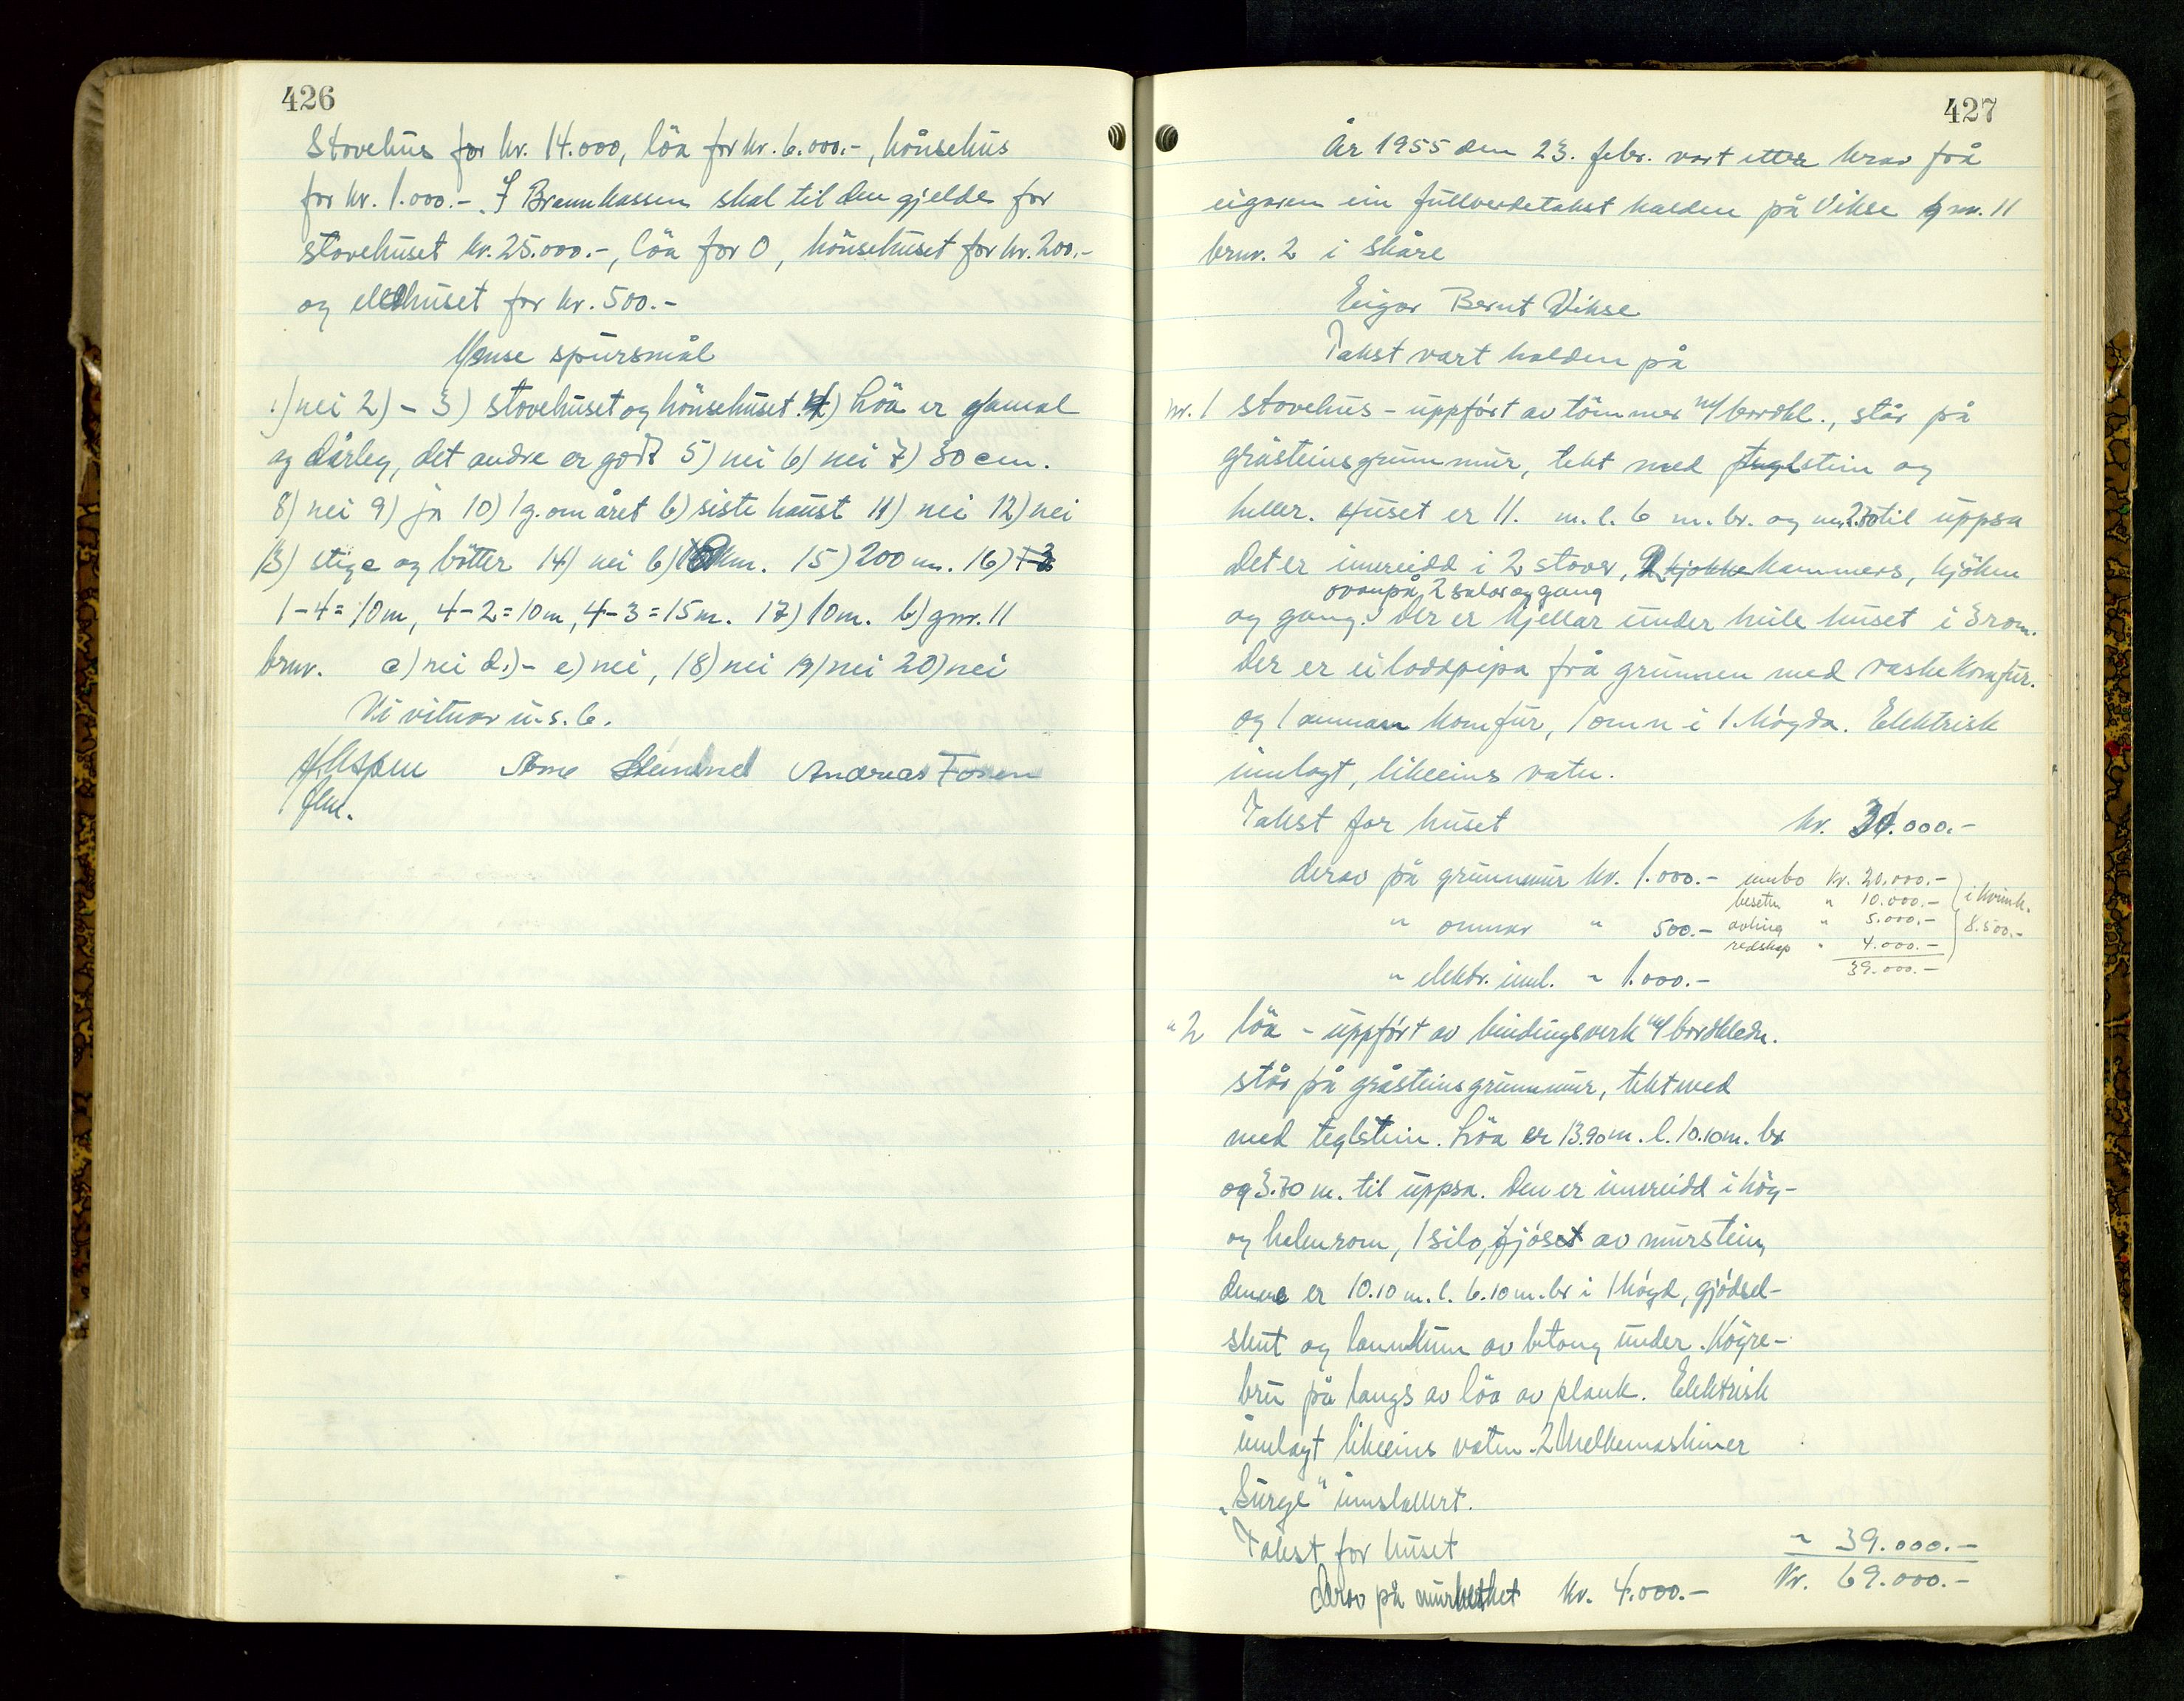 426
Stovehus for kr. 14.000, löa for kr. 6.000.-, hönsehus
for kr. 1.000.-. I Brannkassen skal til den gjelde for
stovehuset kr. 25.000.-, löa for 0, hönsehuset for kr. 200.-
og eldhuset for kr. 500.-
Ymse spursmål
1) nei 2) - 3) stovehuset og hönsehuset. 4) Löa er gamal
og dårleg, det andre er godt 5) nei 6) nei 7) 30 cm.
8) nei 9) ja 10) 1 g. om året b) siste haust 11) nei 12) nei
13) stige og bötter 14) nei b) km. 15) 200 m. 16)
1-4 = 10 m, 4-2 = 10 m, 4-3 = 15 m. 17) 10 m. b) gnr. 11
brnr. c) nei d.) - e) nei, 18) nei 19) nei 20) nei
Vi vitnar u.s.b.
Andreas Fosen
flm.
427
År 1955 den 23. febr. vart etter krav frå
eigaren ein fullverdetakst halden på Vikse gnr. 11
brnr. 2 i Skåre
Eigar Bernt Vikse
Takst vart halden på
nr. 1 stovehus - uppfört av tömmer m/bordkl., står på
gråsteinsgrunnmur, tekt med teglstein og
heller. Huset er 11. m. l. 6 m. br. og m. 2.70 til uppsa
Det er innreidd i 2 stover, 2 kammers, kjöken
ovanpå 2 salar og gang
og gang. Der er kjellar under heile huset i 3 rom.
Der er ei loddpipa frå grunnen med vaskekomfur.
og 1 annan komfur, 1 omn i 1. högda. Elektrisk
innlagt, likeeins vatn.
Takst for huset kr. 30.000.-
derav på grunnmur kr. 1.000.- innbo kr. 20.000.-
besetn " 10.000.- i kvink.
" omnar " 500.- avling " 5.000.- 8.500.-
redskap " 4.000.-
39.000.-
" elektr. innl. " 1.000.-
" 2 löa - uppfört av bindingsverk m/bordkledn.
står på gråsteinsgrunnmur, tekt med
med teglstein. Löa er 13.90 m. l. 10.10 m. br
og 3.70 m. til uppsa. Den er innreidd i höy-
og halmrom, 1 silo, fjöset av murstein,
denne er 10.10 m. l. 6.10 m. br i 1 högd, gjödsel-
skut og lannkum av betong under. Köyre-
bru på langs av löa av plank. Elektrisk
innlagt likeeins vatn. 2 Melkemaskiner
"Surge" innstallert.
Takst for huset " 39.000.-
derav på murverket kr. 4.000.- Kr. 69.000.-